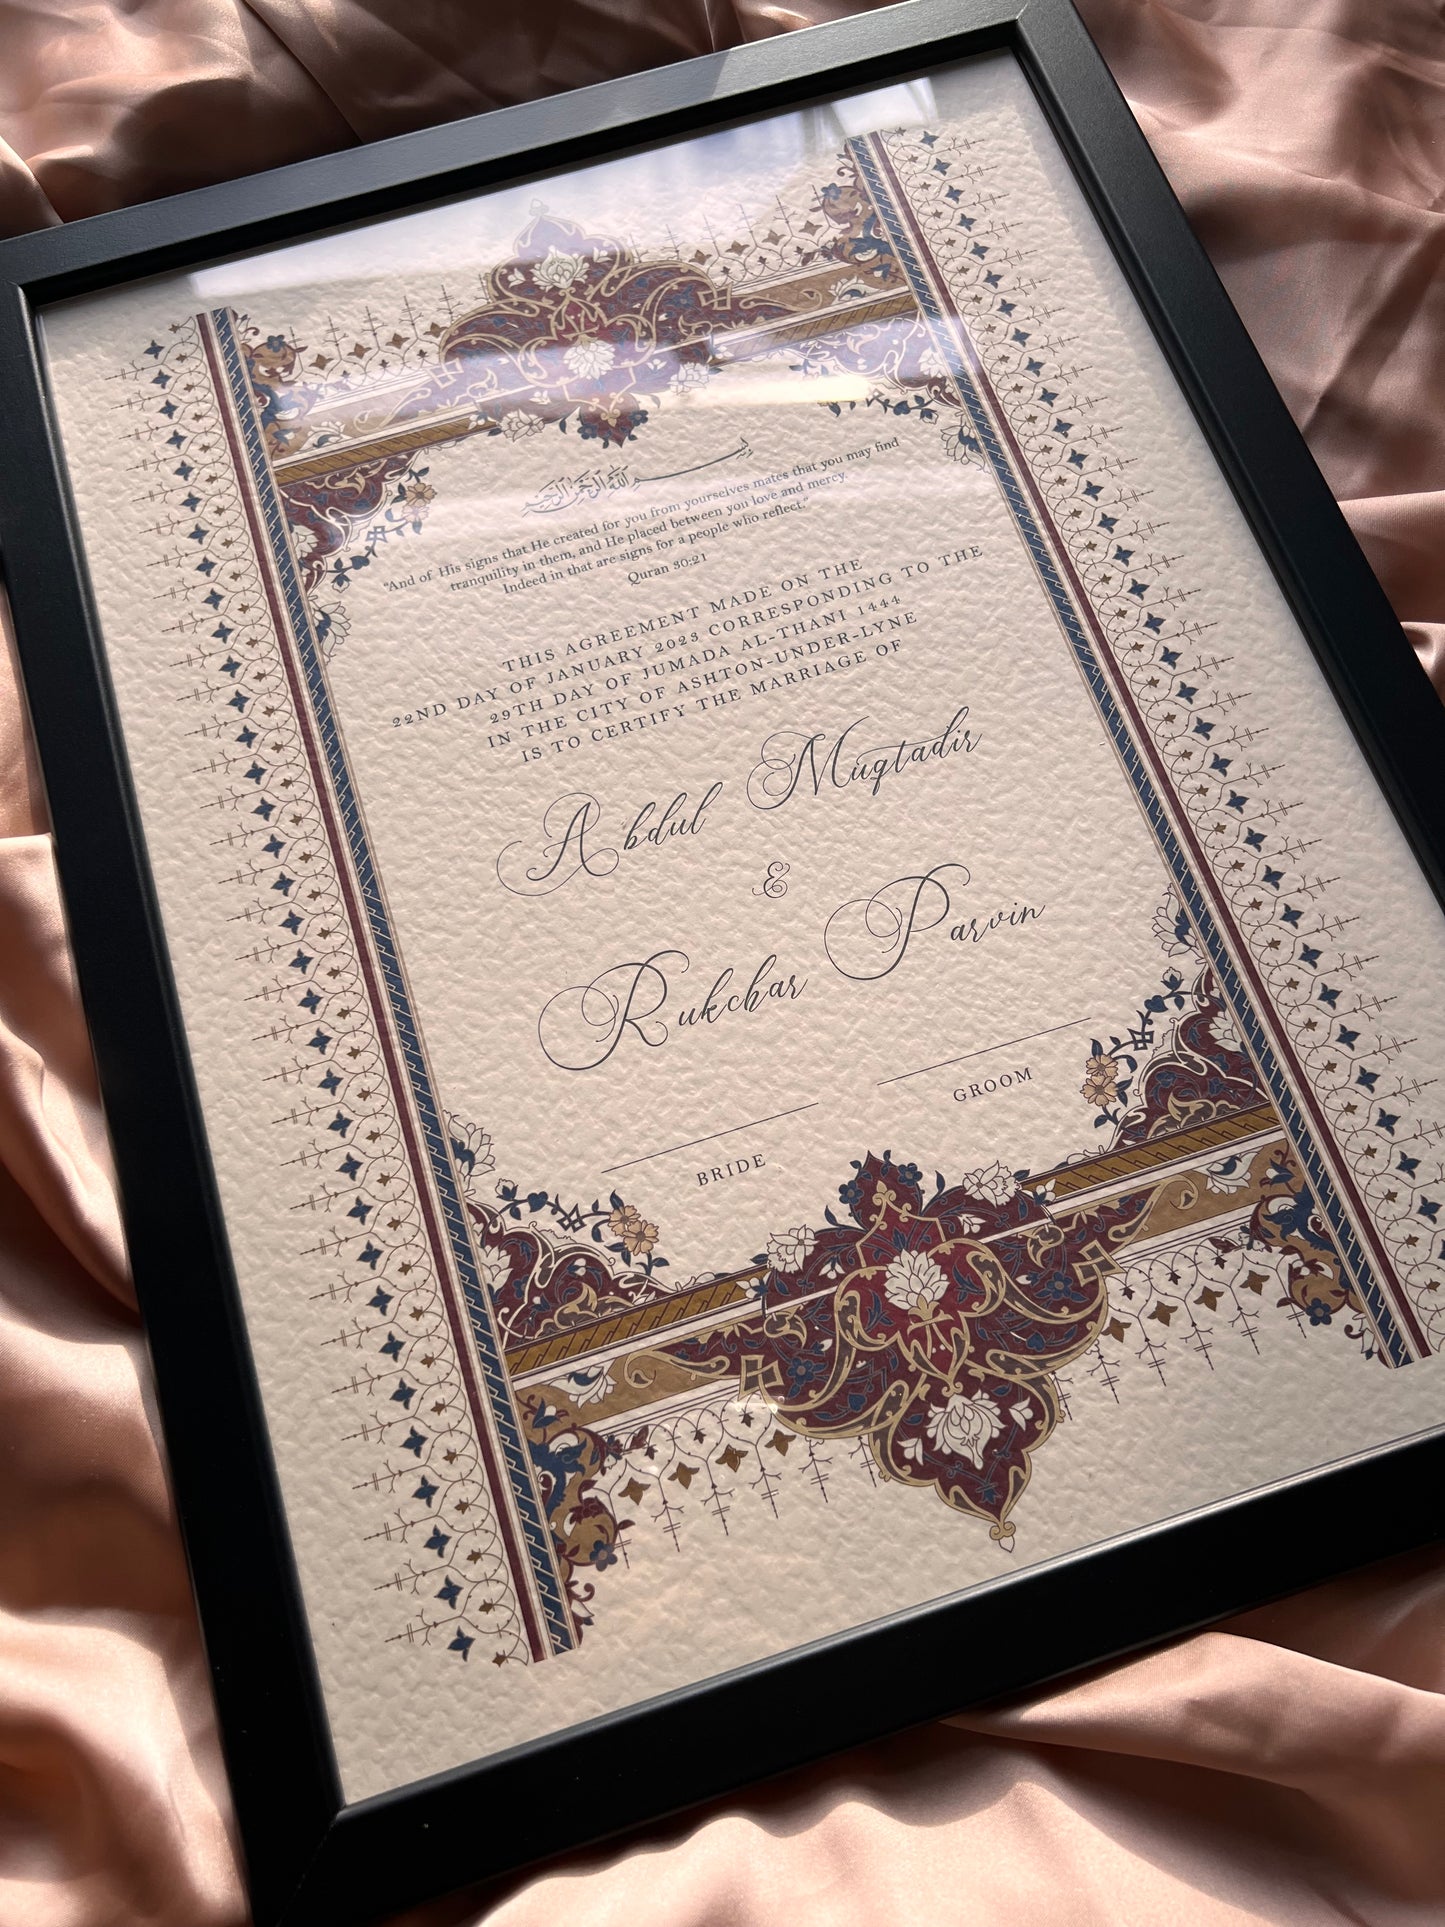 بِسْمِ اللهِ الرَّحْمٰنِ الرَّحِيْمِ
“And of His signs that He created for you from yourselves mates that you may find
tranquility in them, and He placed between you love and mercy.
Indeed in that are signs for a people who reflect.”
Quran 30:21
THIS AGREEMENT MADE ON THE
22ND DAY OF JANUARY 2023 CORRESPONDING TO THE
29TH DAY OF JUMADA AL-THANI 1444
IN THE CITY OF ASHTON-UNDER-LYNE
IS TO CERTIFY THE MARRIAGE OF
Abdul Muqtadir
&
Rukchar Parvin
BRIDE GROOM